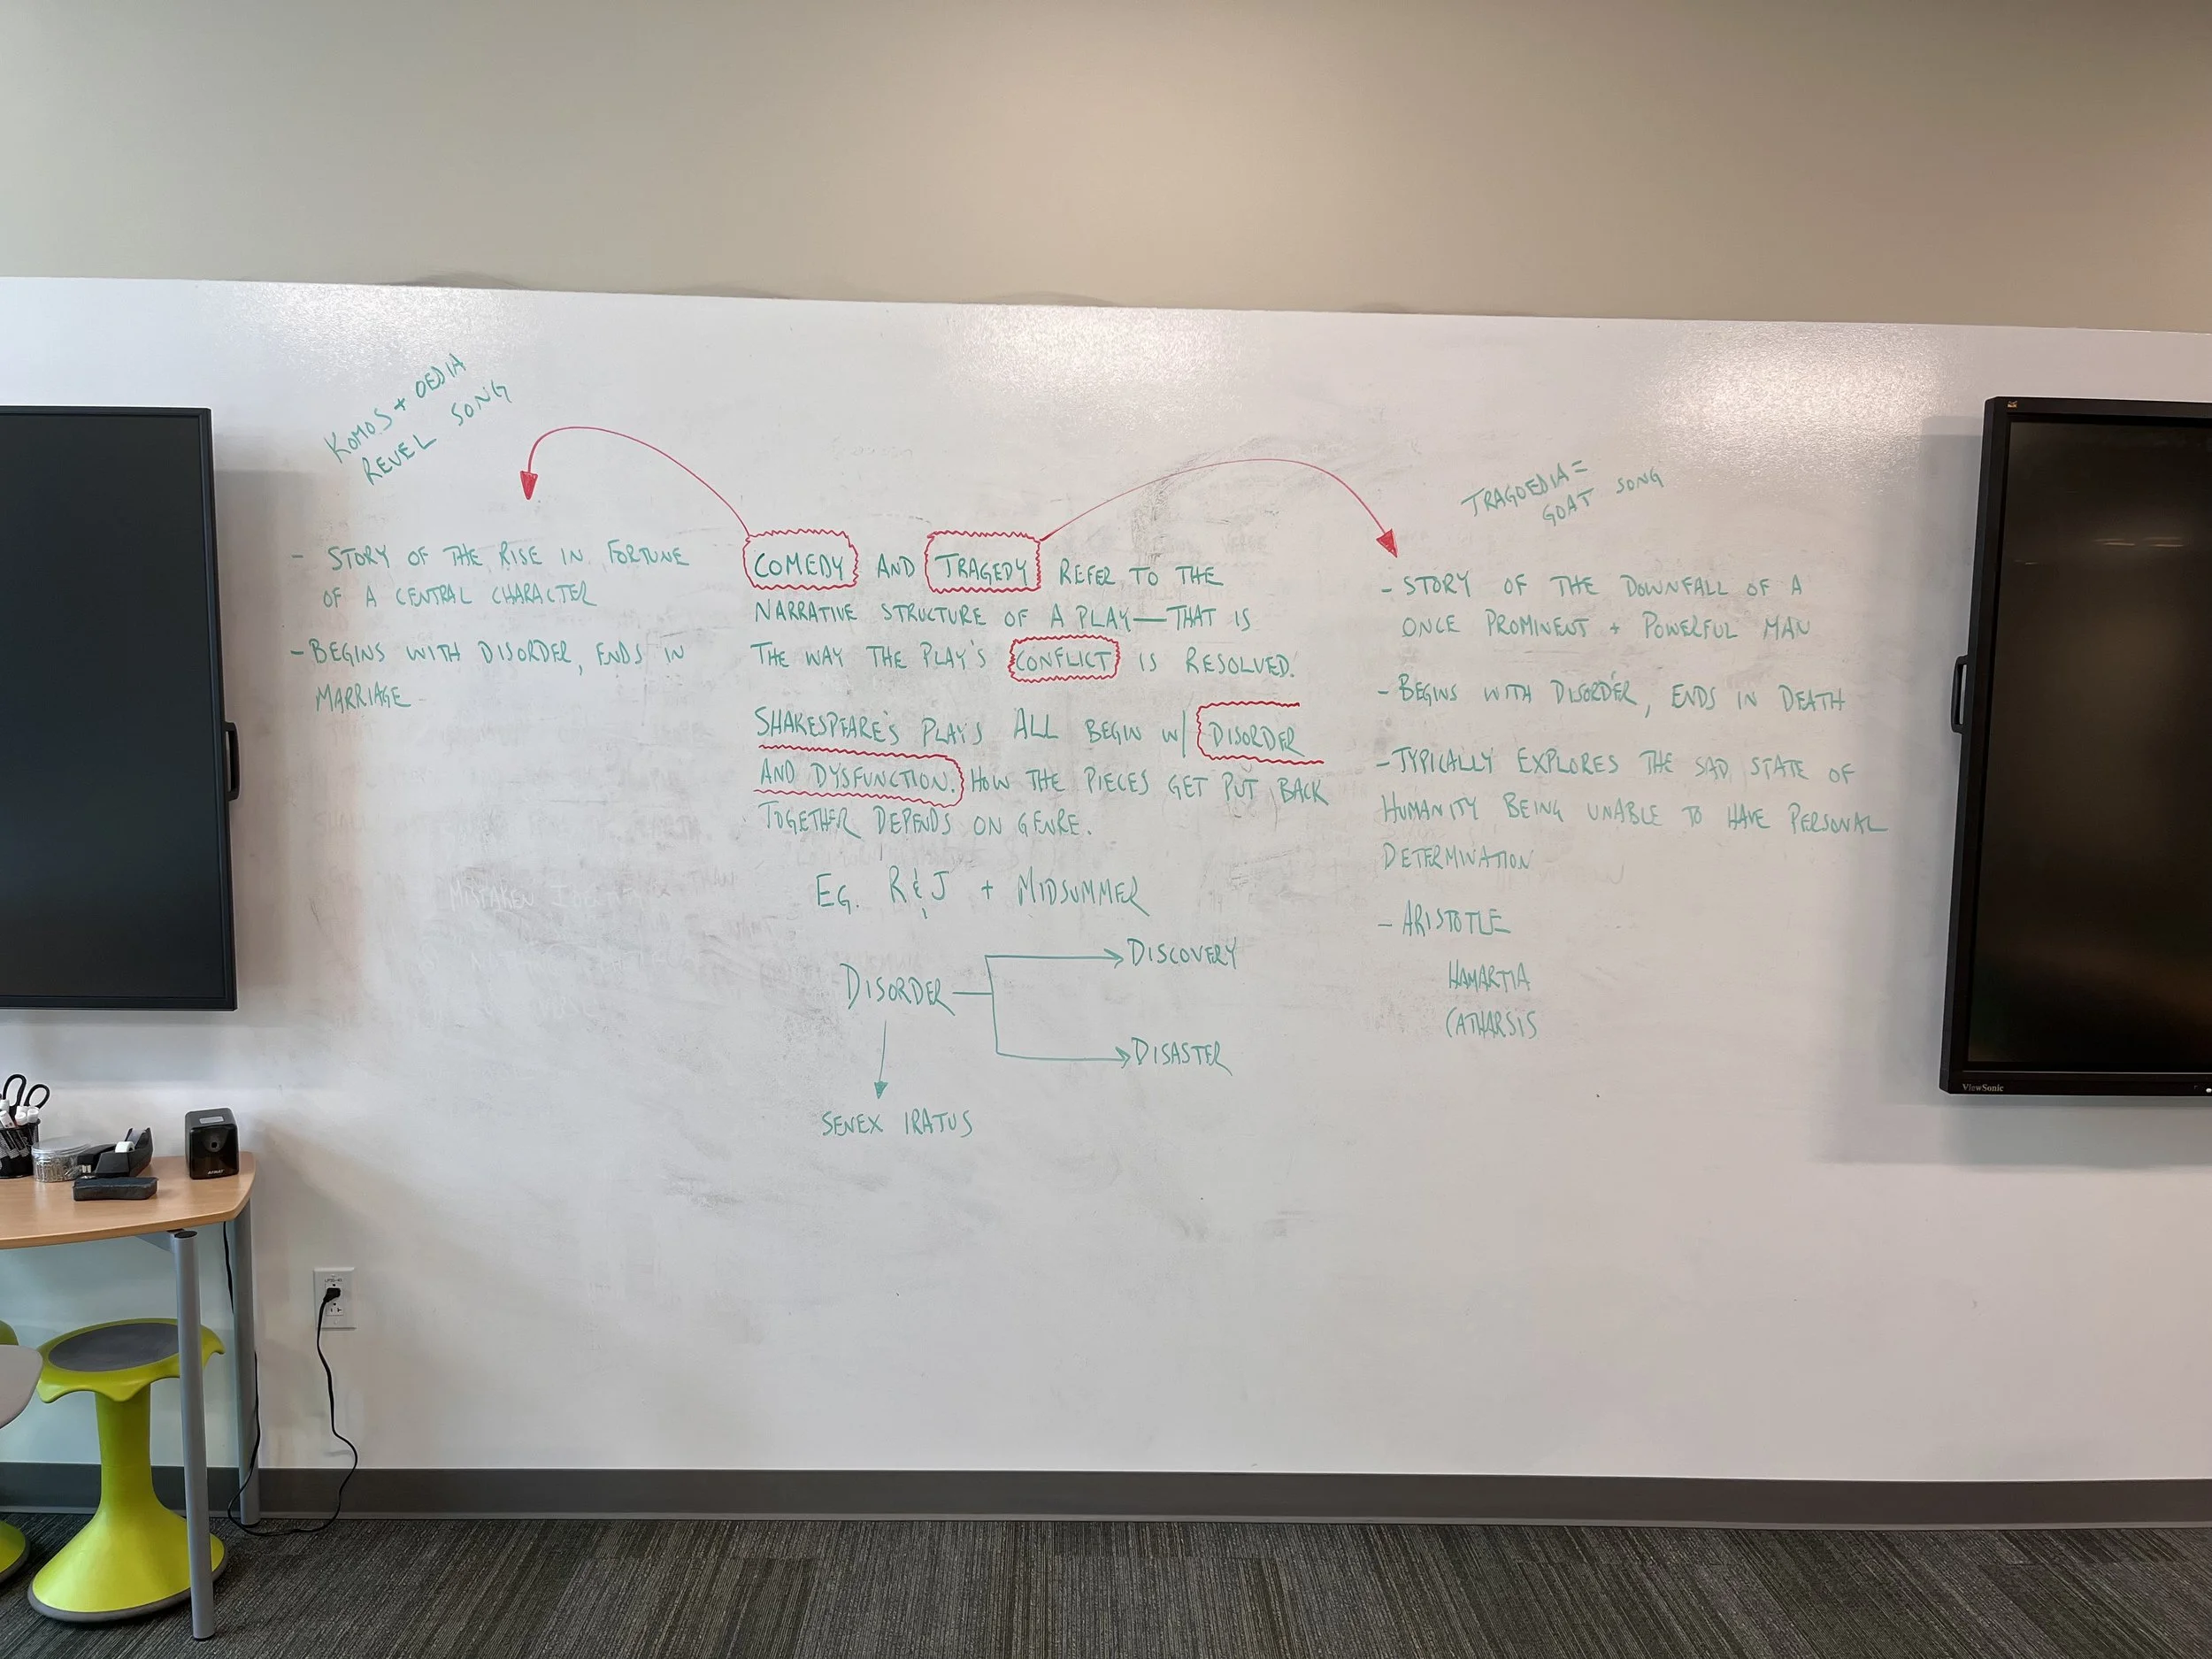 KOMOS + OEDIA
REVEL SONG
- STORY OF THE RISE IN FORTUNE
OF A CENTRAL CHARACTER
- BEGINS WITH DISORDER, ENDS IN
MARRIAGE
COMEDY AND TRAGEDY REFER TO THE
NARRATIVE STRUCTURE OF A PLAY — THAT IS
THE WAY THE PLAY'S CONFLICT IS RESOLVED.
SHAKESPEARE'S PLAYS ALL BEGIN W/ DISORDER
AND DYSFUNCTION. HOW THE PIECES GET PUT BACK
TOGETHER DEPENDS ON GENRE.
EG. R & J + MIDSUMMER
DISORDER
DISCOVERY
DISASTER
SENEX IRATUS
TRAGOEDIA =
GOAT SONG
- STORY OF THE DOWNFALL OF A
ONCE PROMINENT + POWERFUL MAN
- BEGINS WITH DISORDER, ENDS IN DEATH
- TYPICALLY EXPLORES THE SAD STATE OF
HUMANITY BEING UNABLE TO HAVE PERSONAL
DETERMINATION
- ARISTOTLE
HAMARTIA
CATHARSIS
ViewSonic